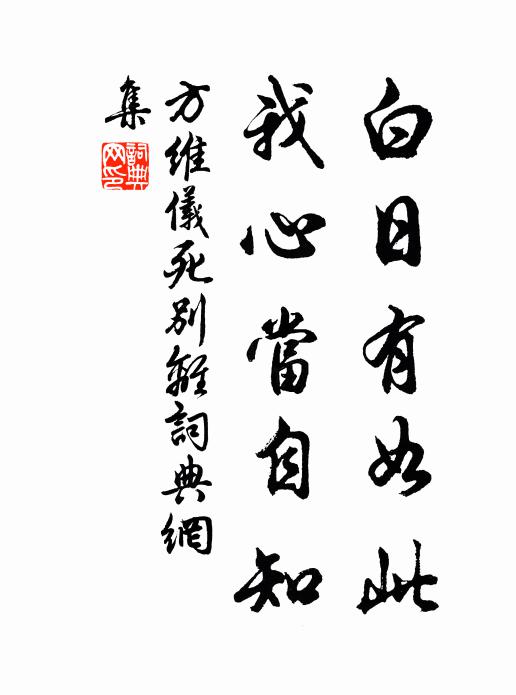 白日有如此
我心當自知
方維儀死別離詞典網
集
詞典網印